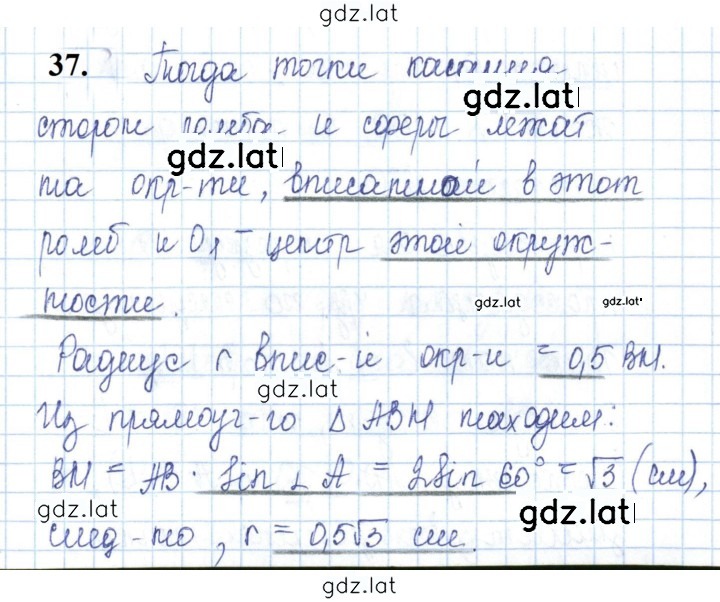 gdz.lat
37. Тогда точки касания
gdz.lat
сторон ромба и сферы лежат
gdz.lat
на окр-ти, вписанной в этот
ромб и O₁ – центр этой окруж-
ности. gdz.lat gdz.lat
Радиус r впис-й окр-и = 0,5 BH.
gdz.lat
Из прямоуг-го Δ ABH находим:
BH = AB · sin ∠ A = 2 sin 60° = √3 (см),
gdz.lat gdz.lat
след-но, r = 0,5√3 см.
gdz.lat